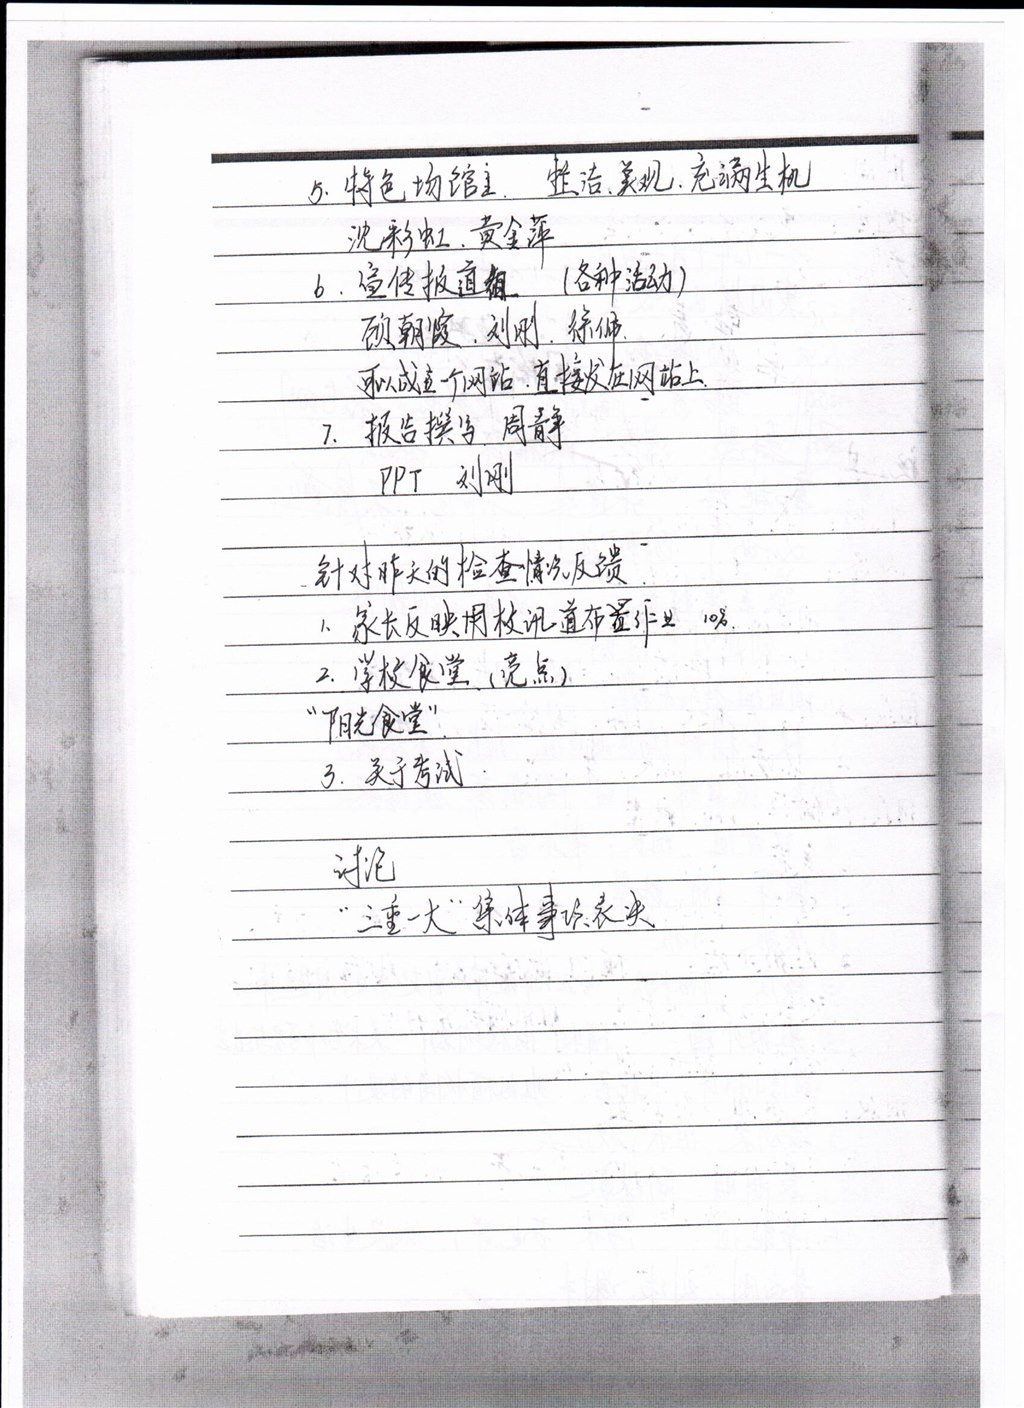 5. 特色场馆主. 整洁、美观、充满生机
沈彩虹、黄金萍
6. 宣传报道组 (各种活动)
顾朝霞、刘刚、徐佩.
可以成立一个网站,直接发在网站上.
7. 报告撰写. 周静
PPT 刘刚
针对昨天的检查情况反馈.
1. 家长反映用校讯道布置作业 10%.
2. 学校食堂.(亮点)
“阳光食堂”.
3. 关于考试.
讨论
“三重一大”集体事项表决